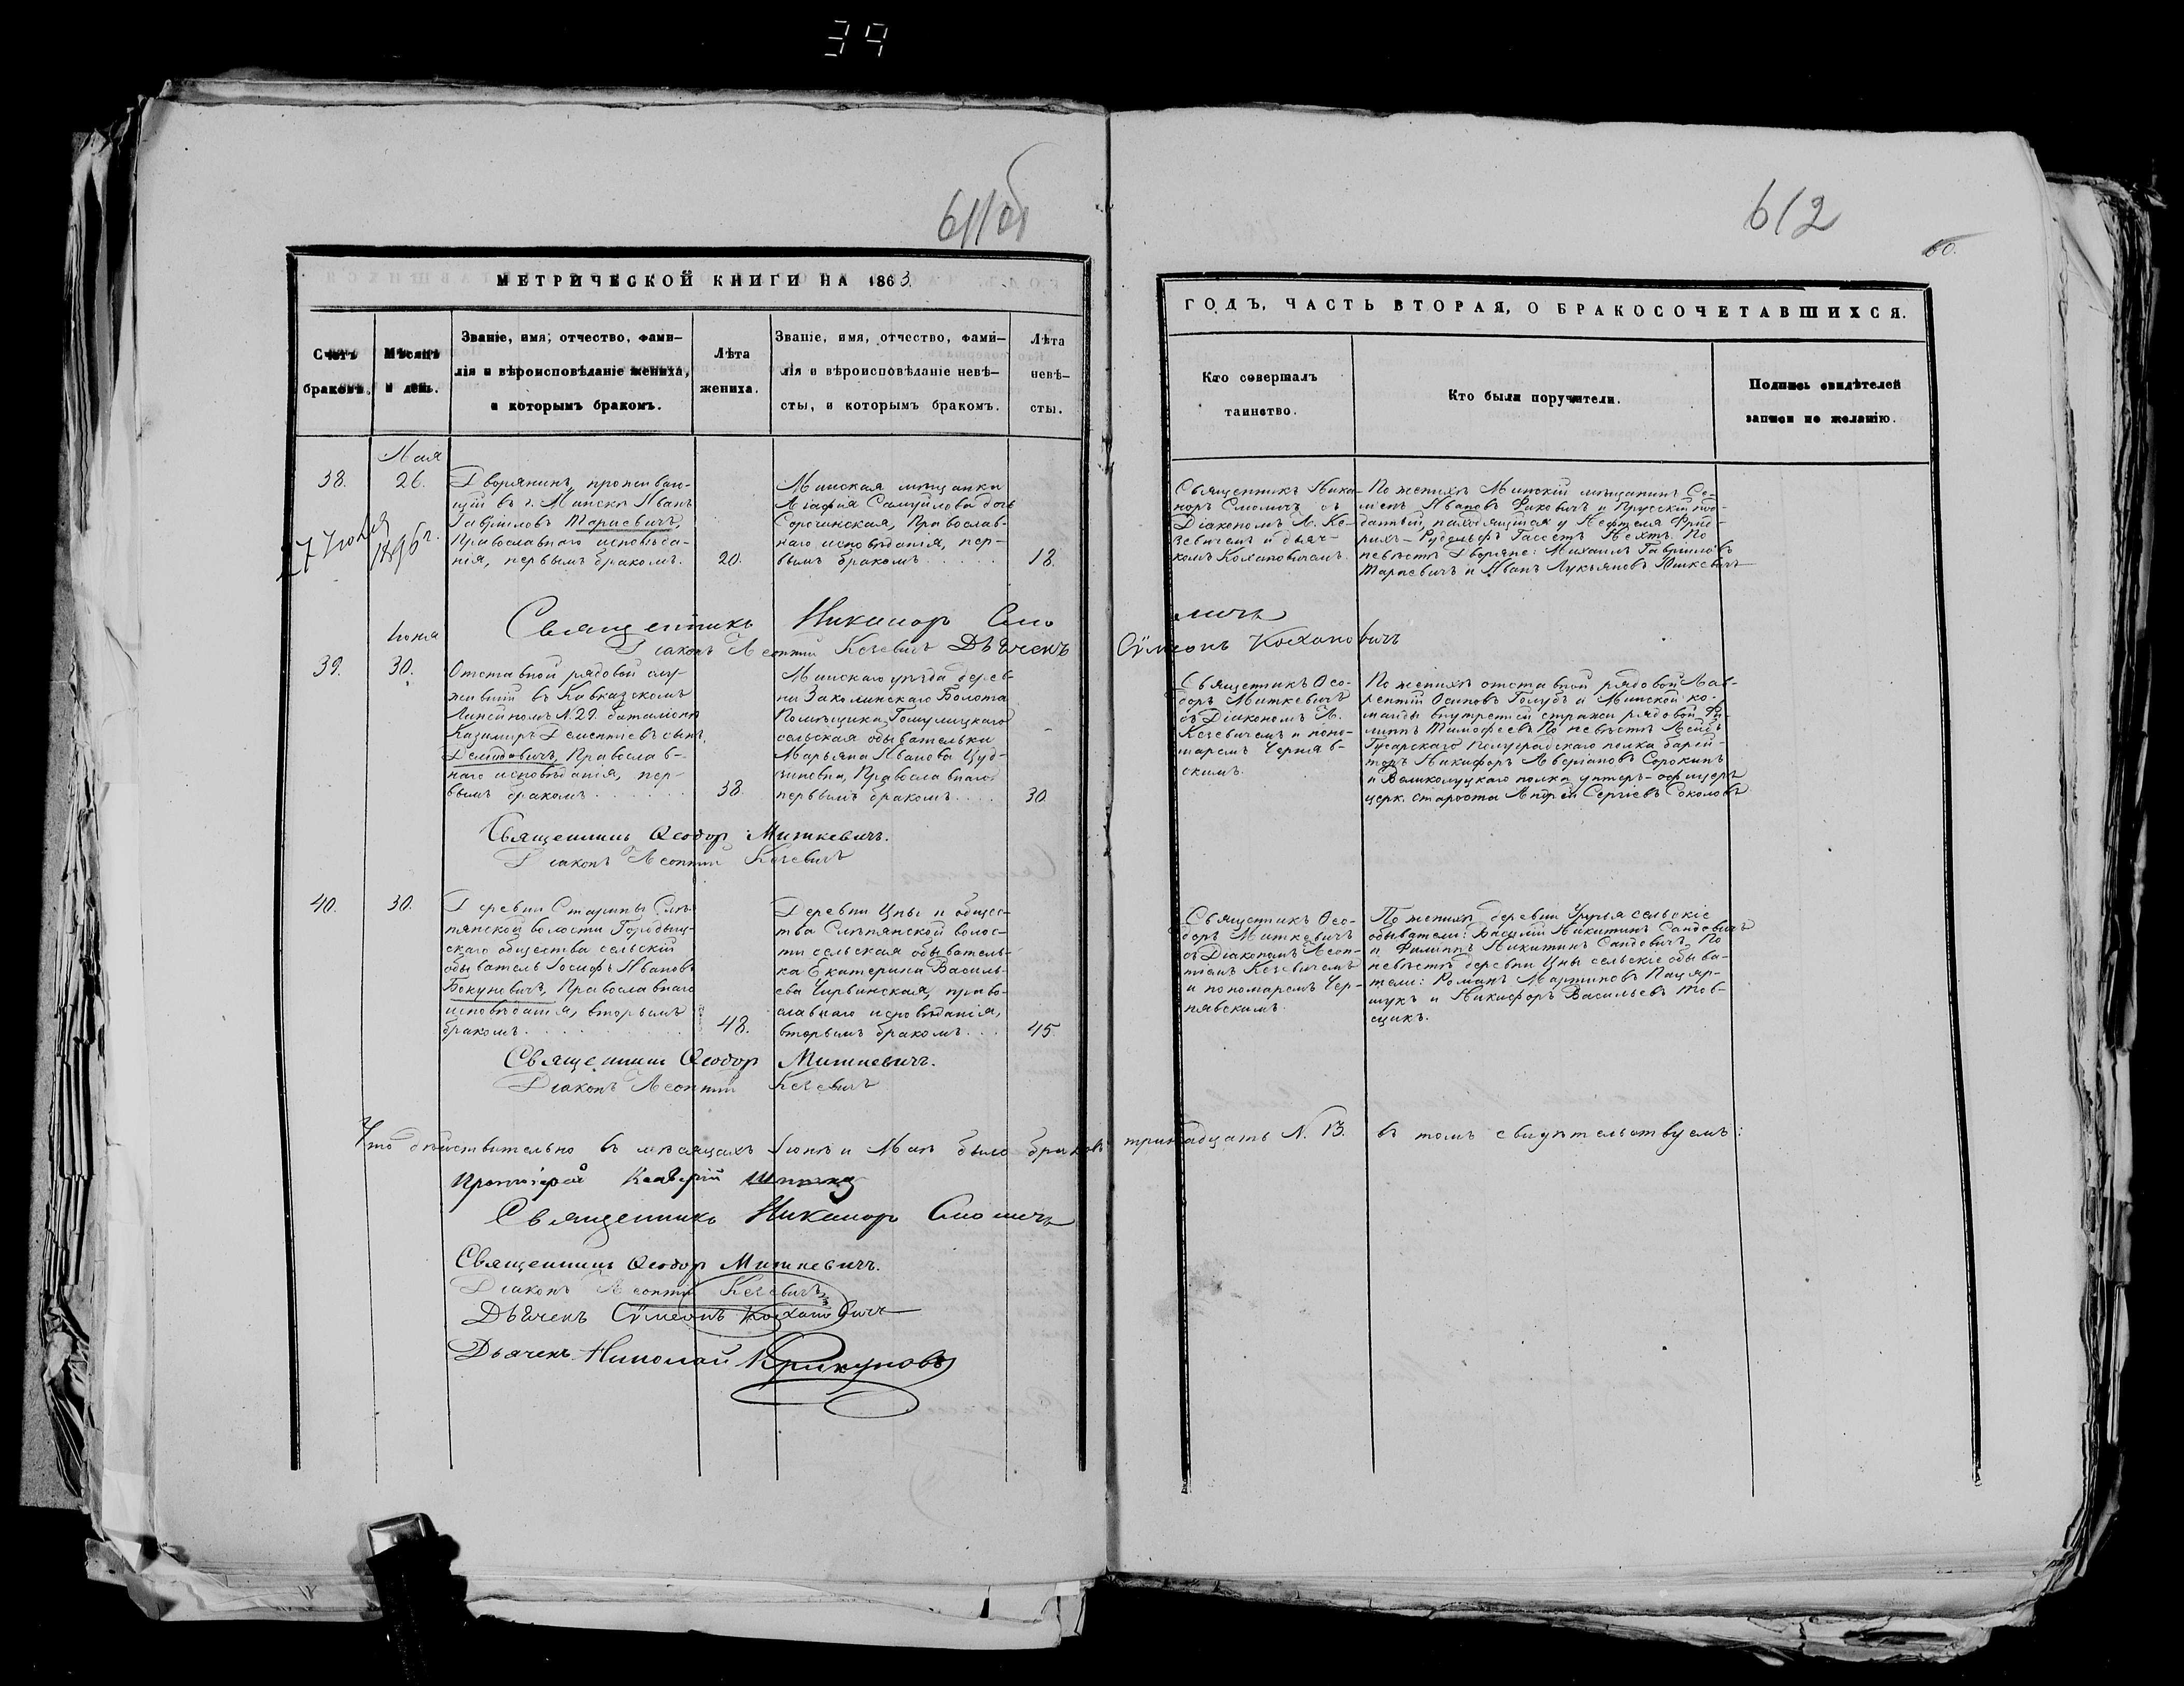 39
611об
612
60.
МЕТРИЧЕСКОЙ КНИГИ НА 1863.
Счетъ браковъ.
Мѣсяцъ и день.
Званіе, имя, отчество, фами-
лія и вѣроисповѣданіе жениха,
и которымъ бракомъ.
Лѣта
жениха.
Званіе, имя, отчество, фами-
лія и вѣроисповѣданіе невѣ-
сты, и которымъ бракомъ.
Лѣта
невѣ-
сты.
ГОДЪ, ЧАСТЬ ВТОРАЯ, О БРАКОСОЧЕТАВШИХСЯ.
Кто совершалъ
таинство.
Кто были поручители.
Подпись свидѣтелей
записи по желанію.
Мая
38.
26.
1896 г.
Дворянинъ, проживаю-
щій въ г. Минскѣ Иванъ
Гавриловъ Тарасевичъ,
Православнаго исповѣда-
нія, первымъ бракомъ.
20.
Минская мѣщанка
Агафія Самуилова дочь
Сорочинская, Православ-
наго исповѣданія, пер-
вымъ бракомъ
18.
Священникъ Ника-
норъ Смоличъ съ
Діакономъ Л. Ке-
зевичемъ и дьяч-
комъ Кохановичемъ.
По женихѣ Минскій мѣщанинъ Се-
менъ Ивановъ и Прусскій под-
данный, находящійся у Фрид-
рихъ-Рудольфъ По
невѣстѣ Дворяне: Михаилъ Гавриловъ
Тарасевичъ и Иванъ Лукьяновъ
Священникъ Никаноръ Смоличъ
Діаконъ Леонтій Кезевичъ Дьячекъ Сумеонъ Кохановичъ
Іюня
39.
30.
Отставной рядовой слу-
жившій въ Кавказскомъ
Линейномъ N. 29. баталіонѣ
Казимиръ Дементіевъ сынъ,
Демидовичъ, Православ-
наго исповѣданія, пер-
вымъ бракомъ
38.
Минскаго уѣзда дерев-
ни Заколинскаго Болота
Помѣщика
сельская обывателька
Марьяна Иванова
Православнаго
первымъ бракомъ
30.
Священникъ Ѳео-
доръ Миткевичъ
съ Діакономъ Л.
Кезевичемъ и поно-
маремъ Черняв-
скимъ.
По женихѣ отставной рядовой Лав-
рентій Осиповъ Голубъ и Минской ко-
манды внутренней стражи рядовой Фи-
липпъ Тимофеевъ По невѣстѣ Лейбъ
Гусарскаго полка
Никифоръ Сорокинъ
и Великолуцкаго полка унтеръ-офицеръ
церк. староста Андрей Сергіевъ Соколовъ
Священникъ Ѳеодоръ Миткевичъ.
Діаконъ Леонтій Кезевичъ
40.
30.
Деревни Старины Слѣ-
пянской волости Городищ-
скаго общества сельскій
обыватель Іосифъ Ивановъ
Бокуневичъ, Православнаго
исповѣданія, вторымъ
бракомъ
48.
Деревни Цны и общес-
тва Слѣпянской волос-
ти сельская обыватель-
ка Екатерина Василь-
ева Чирвинская, право-
славнаго исповѣданія,
вторымъ бракомъ
45.
Священникъ Ѳео-
доръ Миткевичъ
съ Діакономъ Леон-
тіемъ Кезевичемъ
и пономаремъ Чер-
нявскимъ.
По женихѣ деревни Уручья сельскіе
обыватели: Василій Никитинъ Сандовичъ
и Филиппъ Никитинъ Сандовичъ. По
невѣстѣ деревни Цны сельскіе обыва-
тели: Романъ Мартиновъ
и Никифоръ Васильевъ Тов-
сцикъ.
Священникъ Ѳеодоръ Миткевичъ.
Діаконъ Леонтій Кезевичъ
Что дѣйствительно въ мѣсяцахъ Іюнѣ и Маѣ было браковъ тринадцать N. 13. въ томъ свидѣтельствуемъ:
Протоіерей
Священникъ Никаноръ Смоличъ
Священникъ Ѳеодоръ Миткевичъ.
Діаконъ Леонтій Кезевичъ
Дьячекъ Сумеонъ Кохановичъ
Дьячекъ Николай Крикуновъ